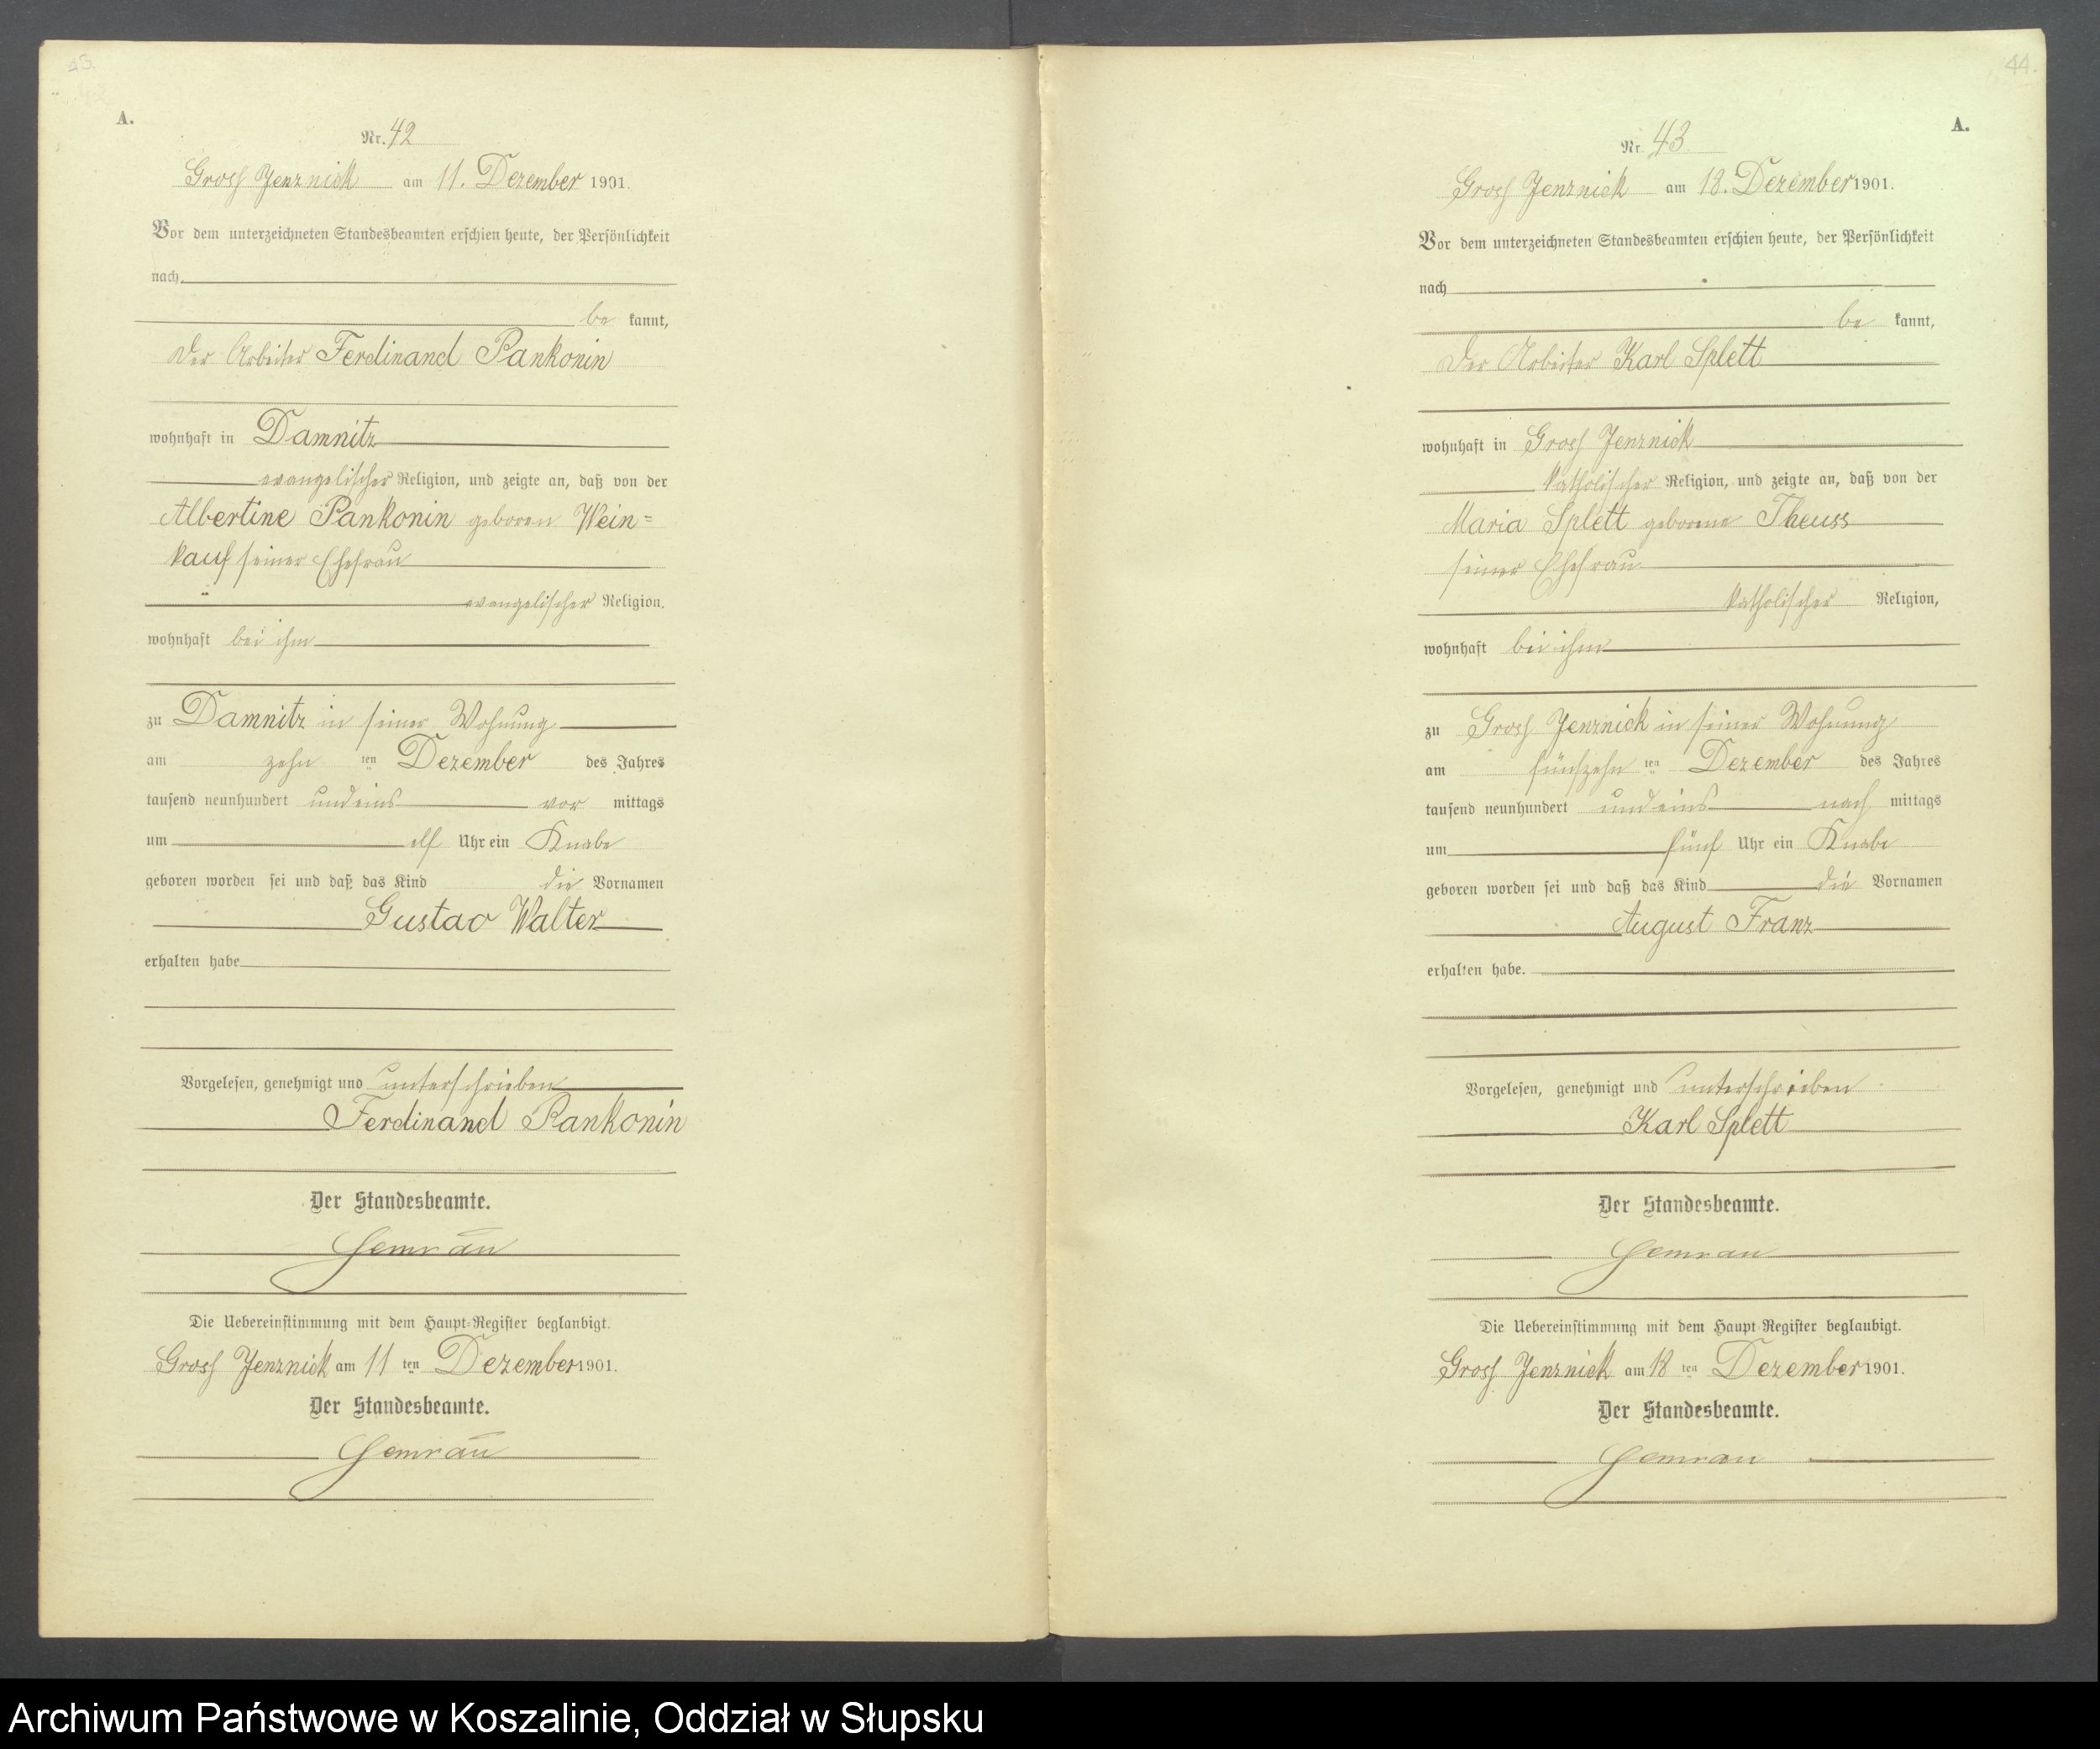 43
A.
Nr. 42
Gross Jenznick am 11. Dezember 1901.
Vor dem unterzeichneten Standesbeamten erschien heute, der Persönlichkeit
nach
be kannt,
der Arbeiter Ferdinand Pankonin
wohnhaft in Damnitz
evangelischer Religion, und zeigte an, daß von der
Albertine Pankonin geboren Wein=
kauf seiner Ehefrau
evangelischer Religion.
wohnhaft bei ihm
zu Damnitz in seiner Wohnung
am zehn ten Dezember des Jahres
tausend neunhundert undeins vor mittags
um elf Uhr ein Knabe
geboren worden sei und daß das Kind die Vornamen
Gustav Walter
erhalten habe
Vorgelesen, genehmigt und unterschrieben
Ferdinand Pankonin
Der Standesbeamte.
Gemrau
Die Uebereinstimmung mit dem Haupt-Register beglaubigt.
Gross Jenznick am 11 ten Dezember 1901.
Der Standesbeamte.
Gemrau
44.
A.
Nr. 43
Gross Jenznick am 18. Dezember 1901.
Vor dem unterzeichneten Standesbeamten erschien heute, der Persönlichkeit
nach
be kannt,
der Arbeiter Karl Splett
wohnhaft in Gross Jenznick
katholischer Religion, und zeigte an, daß von der
Maria Splett geborene Theuss
seiner Ehefrau
katholischer Religion,
wohnhaft bei ihm
zu Gross Jenznick in seiner Wohnung
am fünfzehn ten Dezember des Jahres
tausend neunhundert undeins nach mittags
um fünf Uhr ein Knabe
geboren worden sei und daß das Kind die Vornamen
August Franz
erhalten habe.
Vorgelesen, genehmigt und unterschrieben
Karl Splett
Der Standesbeamte.
Gemrau
Die Uebereinstimmung mit dem Haupt-Register beglaubigt.
Gross Jenznick am 18 ten Dezember 1901.
Der Standesbeamte.
Gemrau
Archiwum Państwowe w Koszalinie, Oddział w Słupsku